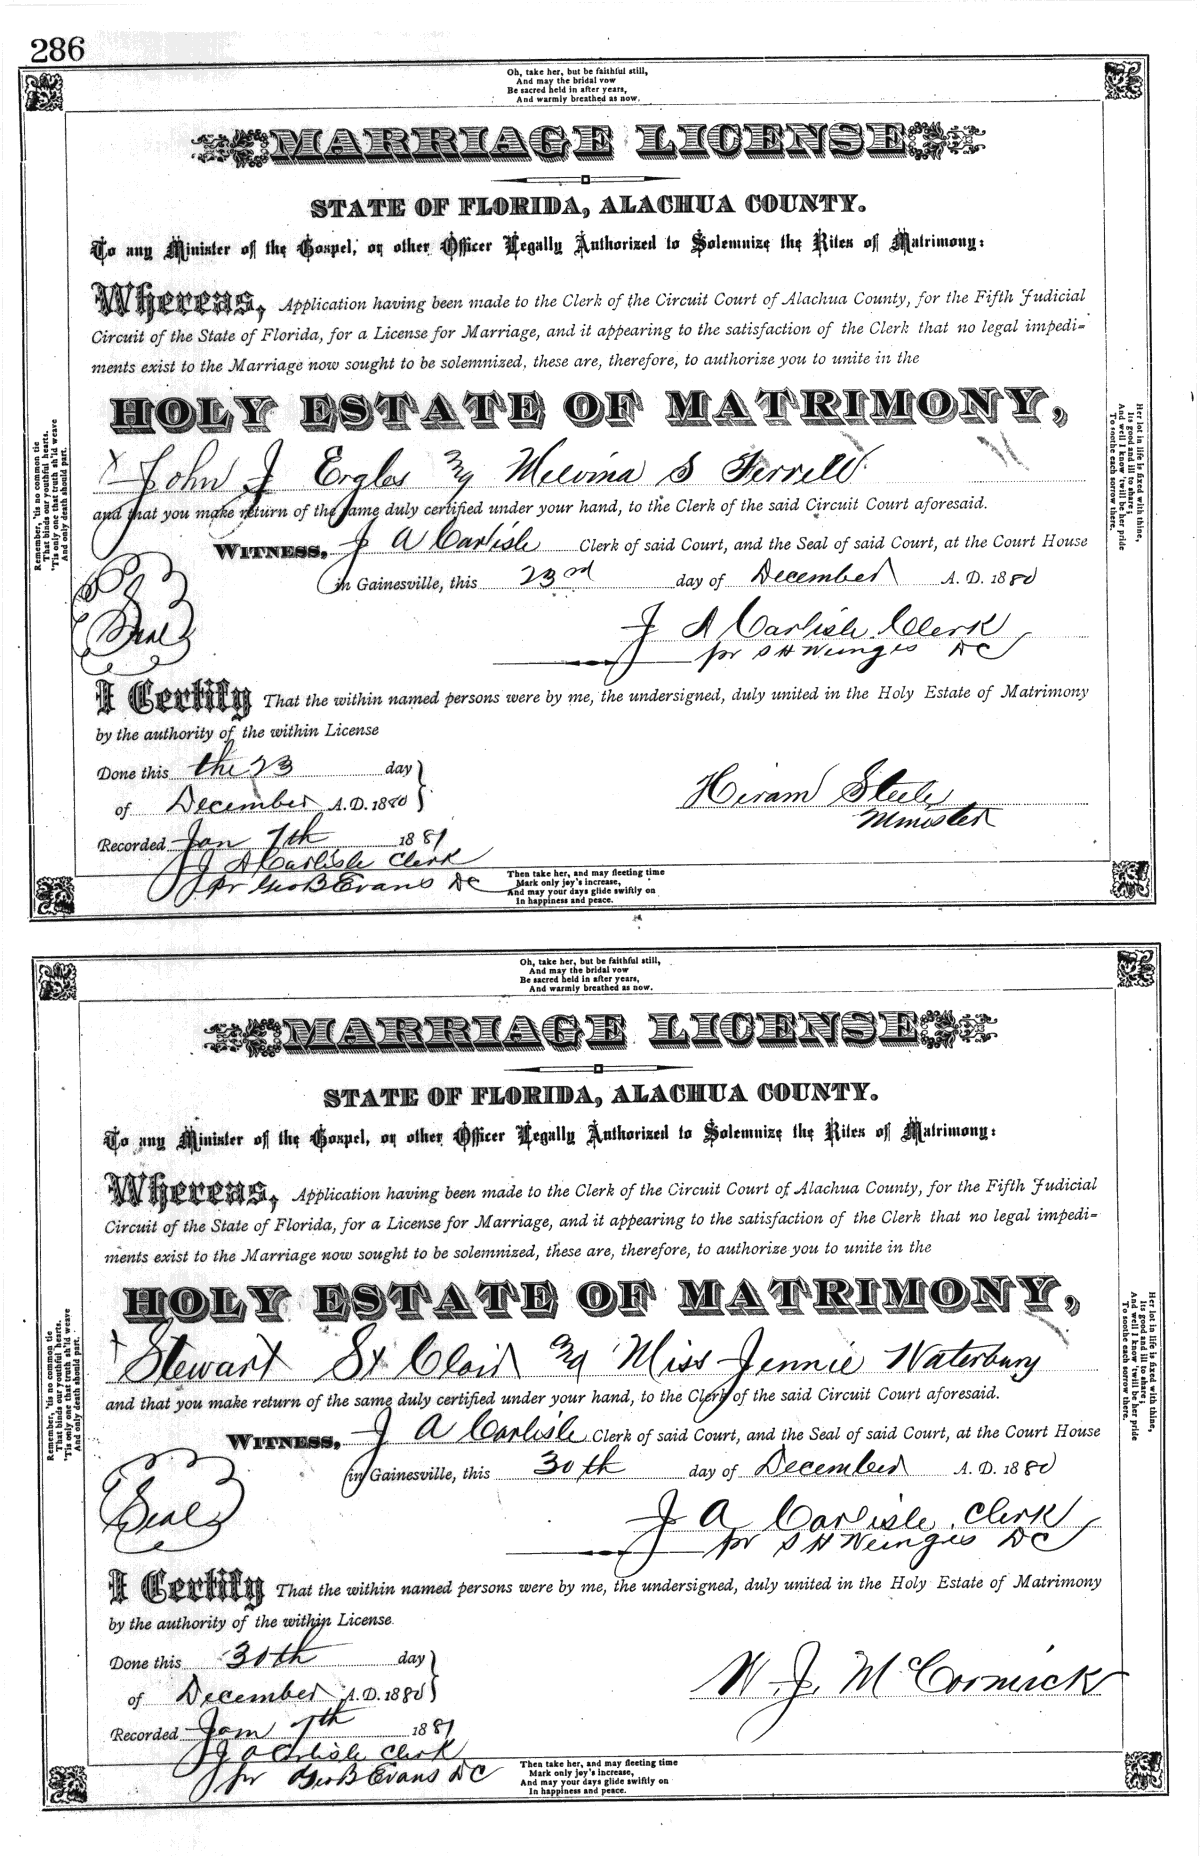 286
Oh, take her, but be faithful still,
And may the bridal vow
Be sacred held in after years,
And warmly breathed as now.
MARRIAGE LICENSE
STATE OF FLORIDA, ALACHUA COUNTY.
To any Minister of the Gospel, or other Officer Legally Authorized to Solemnize the Rites of Matrimony:
Whereas, Application having been made to the Clerk of the Circuit Court of Alachua County, for the Fifth Judicial
Circuit of the State of Florida, for a License for Marriage, and it appearing to the satisfaction of the Clerk that no legal impedi-
ments exist to the Marriage now sought to be solemnized, these are, therefore, to authorize you to unite in the
HOLY ESTATE OF MATRIMONY,
John J Ergles and Melvina S Ferrell
and that you make return of the same duly certified under your hand, to the Clerk of the said Circuit Court aforesaid.
WITNESS, J A Carlisle Clerk of said Court, and the Seal of said Court, at the Court House
in Gainesville, this 23rd day of December A. D. 1880
Seal
J A Carlisle Clerk
pr S H Weinges DC
I Certify That the within named persons were by me, the undersigned, duly united in the Holy Estate of Matrimony
by the authority of the within License
Done this the 23 day
of December A. D. 1880
Hiram Steele
Minister
Recorded Jan 7th 1881
J A Carlisle Clerk
pr Geo B Evans DC
Remember, 'tis no common tie
That binds our youthful hearts,
'Tis only one that truth sh'ld weave
And only death should part.
Her lot in life is fixed with thine,
Its good and ill to share;
And well I know 'twill be her pride
To soothe each sorrow there.
Then take her, and may fleeting time
Mark only joy's increase,
And may your days glide swiftly on
In happiness and peace.
Oh, take her, but be faithful still,
And may the bridal vow
Be sacred held in after years,
And warmly breathed as now.
MARRIAGE LICENSE
STATE OF FLORIDA, ALACHUA COUNTY.
To any Minister of the Gospel, or other Officer Legally Authorized to Solemnize the Rites of Matrimony:
Whereas, Application having been made to the Clerk of the Circuit Court of Alachua County, for the Fifth Judicial
Circuit of the State of Florida, for a License for Marriage, and it appearing to the satisfaction of the Clerk that no legal impedi-
ments exist to the Marriage now sought to be solemnized, these are, therefore, to authorize you to unite in the
HOLY ESTATE OF MATRIMONY,
Stewart St Clair and Miss Jennie Waterbury
and that you make return of the same duly certified under your hand, to the Clerk of the said Circuit Court aforesaid.
WITNESS, J A Carlisle Clerk of said Court, and the Seal of said Court, at the Court House
in Gainesville, this 30th day of December A. D. 1880
Seal
J A Carlisle, Clerk
pr S H Weinges DC
I Certify That the within named persons were by me, the undersigned, duly united in the Holy Estate of Matrimony
by the authority of the within License
Done this 30th day
of December A. D. 1880
W. J. McCormick
Recorded Jan 7th 1881
J A Carlisle Clerk
pr Geo B Evans DC
Remember, 'tis no common tie
That binds our youthful hearts,
'Tis only one that truth sh'ld weave
And only death should part.
Her lot in life is fixed with thine,
its good and ill to share;
And well I know 'twill be her pride
To soothe each sorrow there.
Then take her, and may fleeting time
Mark only joy's increase,
And may your days glide swiftly on
In happiness and peace.